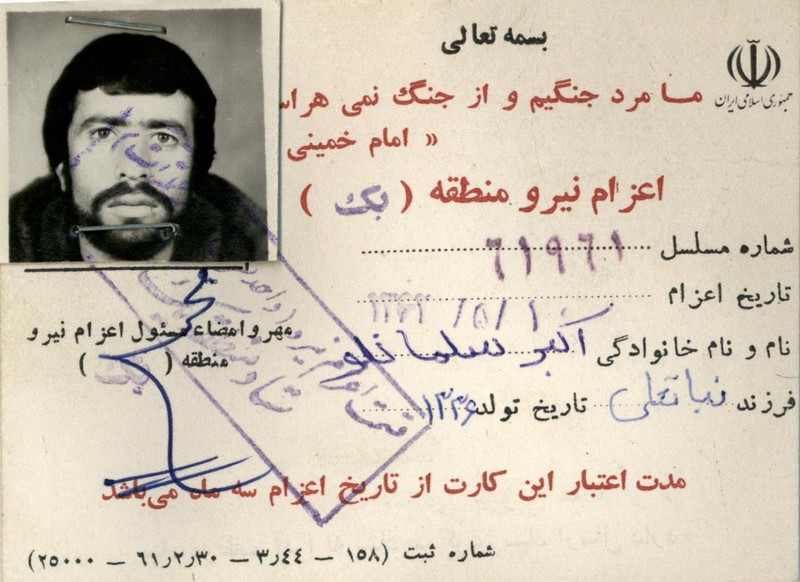 بسمه تعالی
جمهوری اسلامی ایران
ما مرد جنگیم و از جنگ نمی هراس
« امام خمینی
اعزام نیرو منطقه ( یک )
شماره مسلسل ۶۱۹۶۱
تاریخ اعزام
نام و نام خانوادگی اکبر سلمانلو
مهر و امضاء مسئول اعزام نیرو
منطقه ( یک )
فرزند نباتعلی تاریخ تولد ۱۳۳۶
مدت اعتبار این کارت از تاریخ اعزام سه ماه می‌باشد
شماره ثبت (۱۵۸ – ۳٫۴۴ – ۶۱٫۲٫۳۰ – ۲۵۰۰۰)